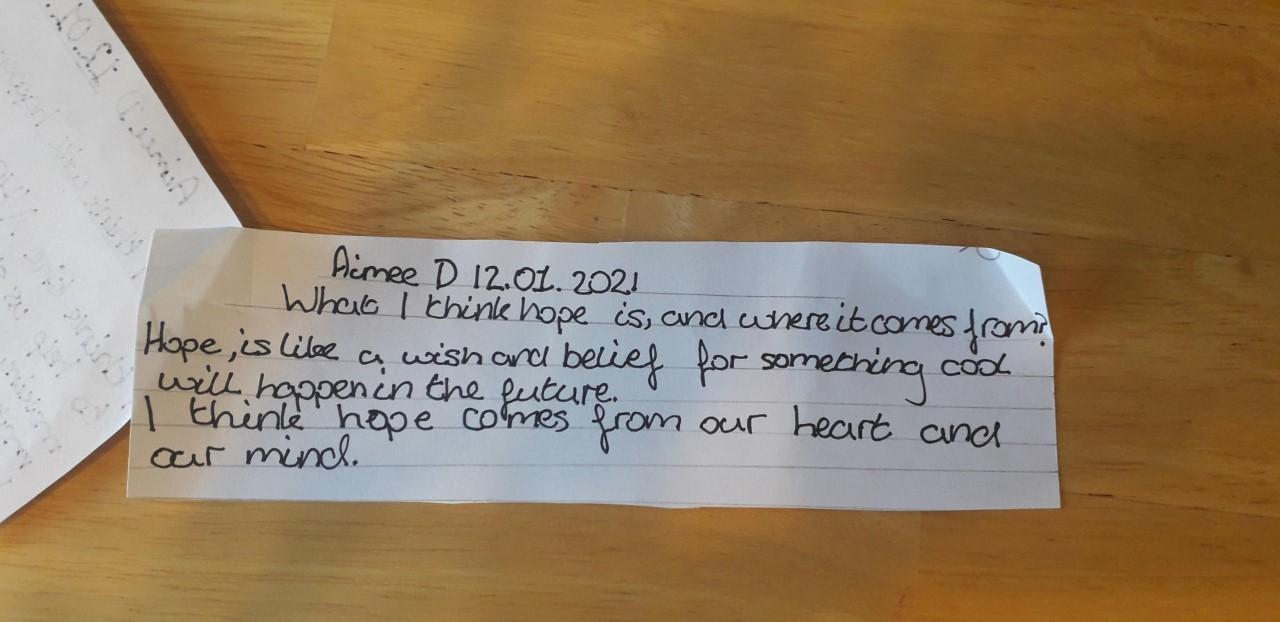 Aimee D 12.01.2021
What I think hope is, and where it comes from?
Hope, is like a wish and belief for something cool
will happen in the future.
I think hope comes from our heart and
our mind.